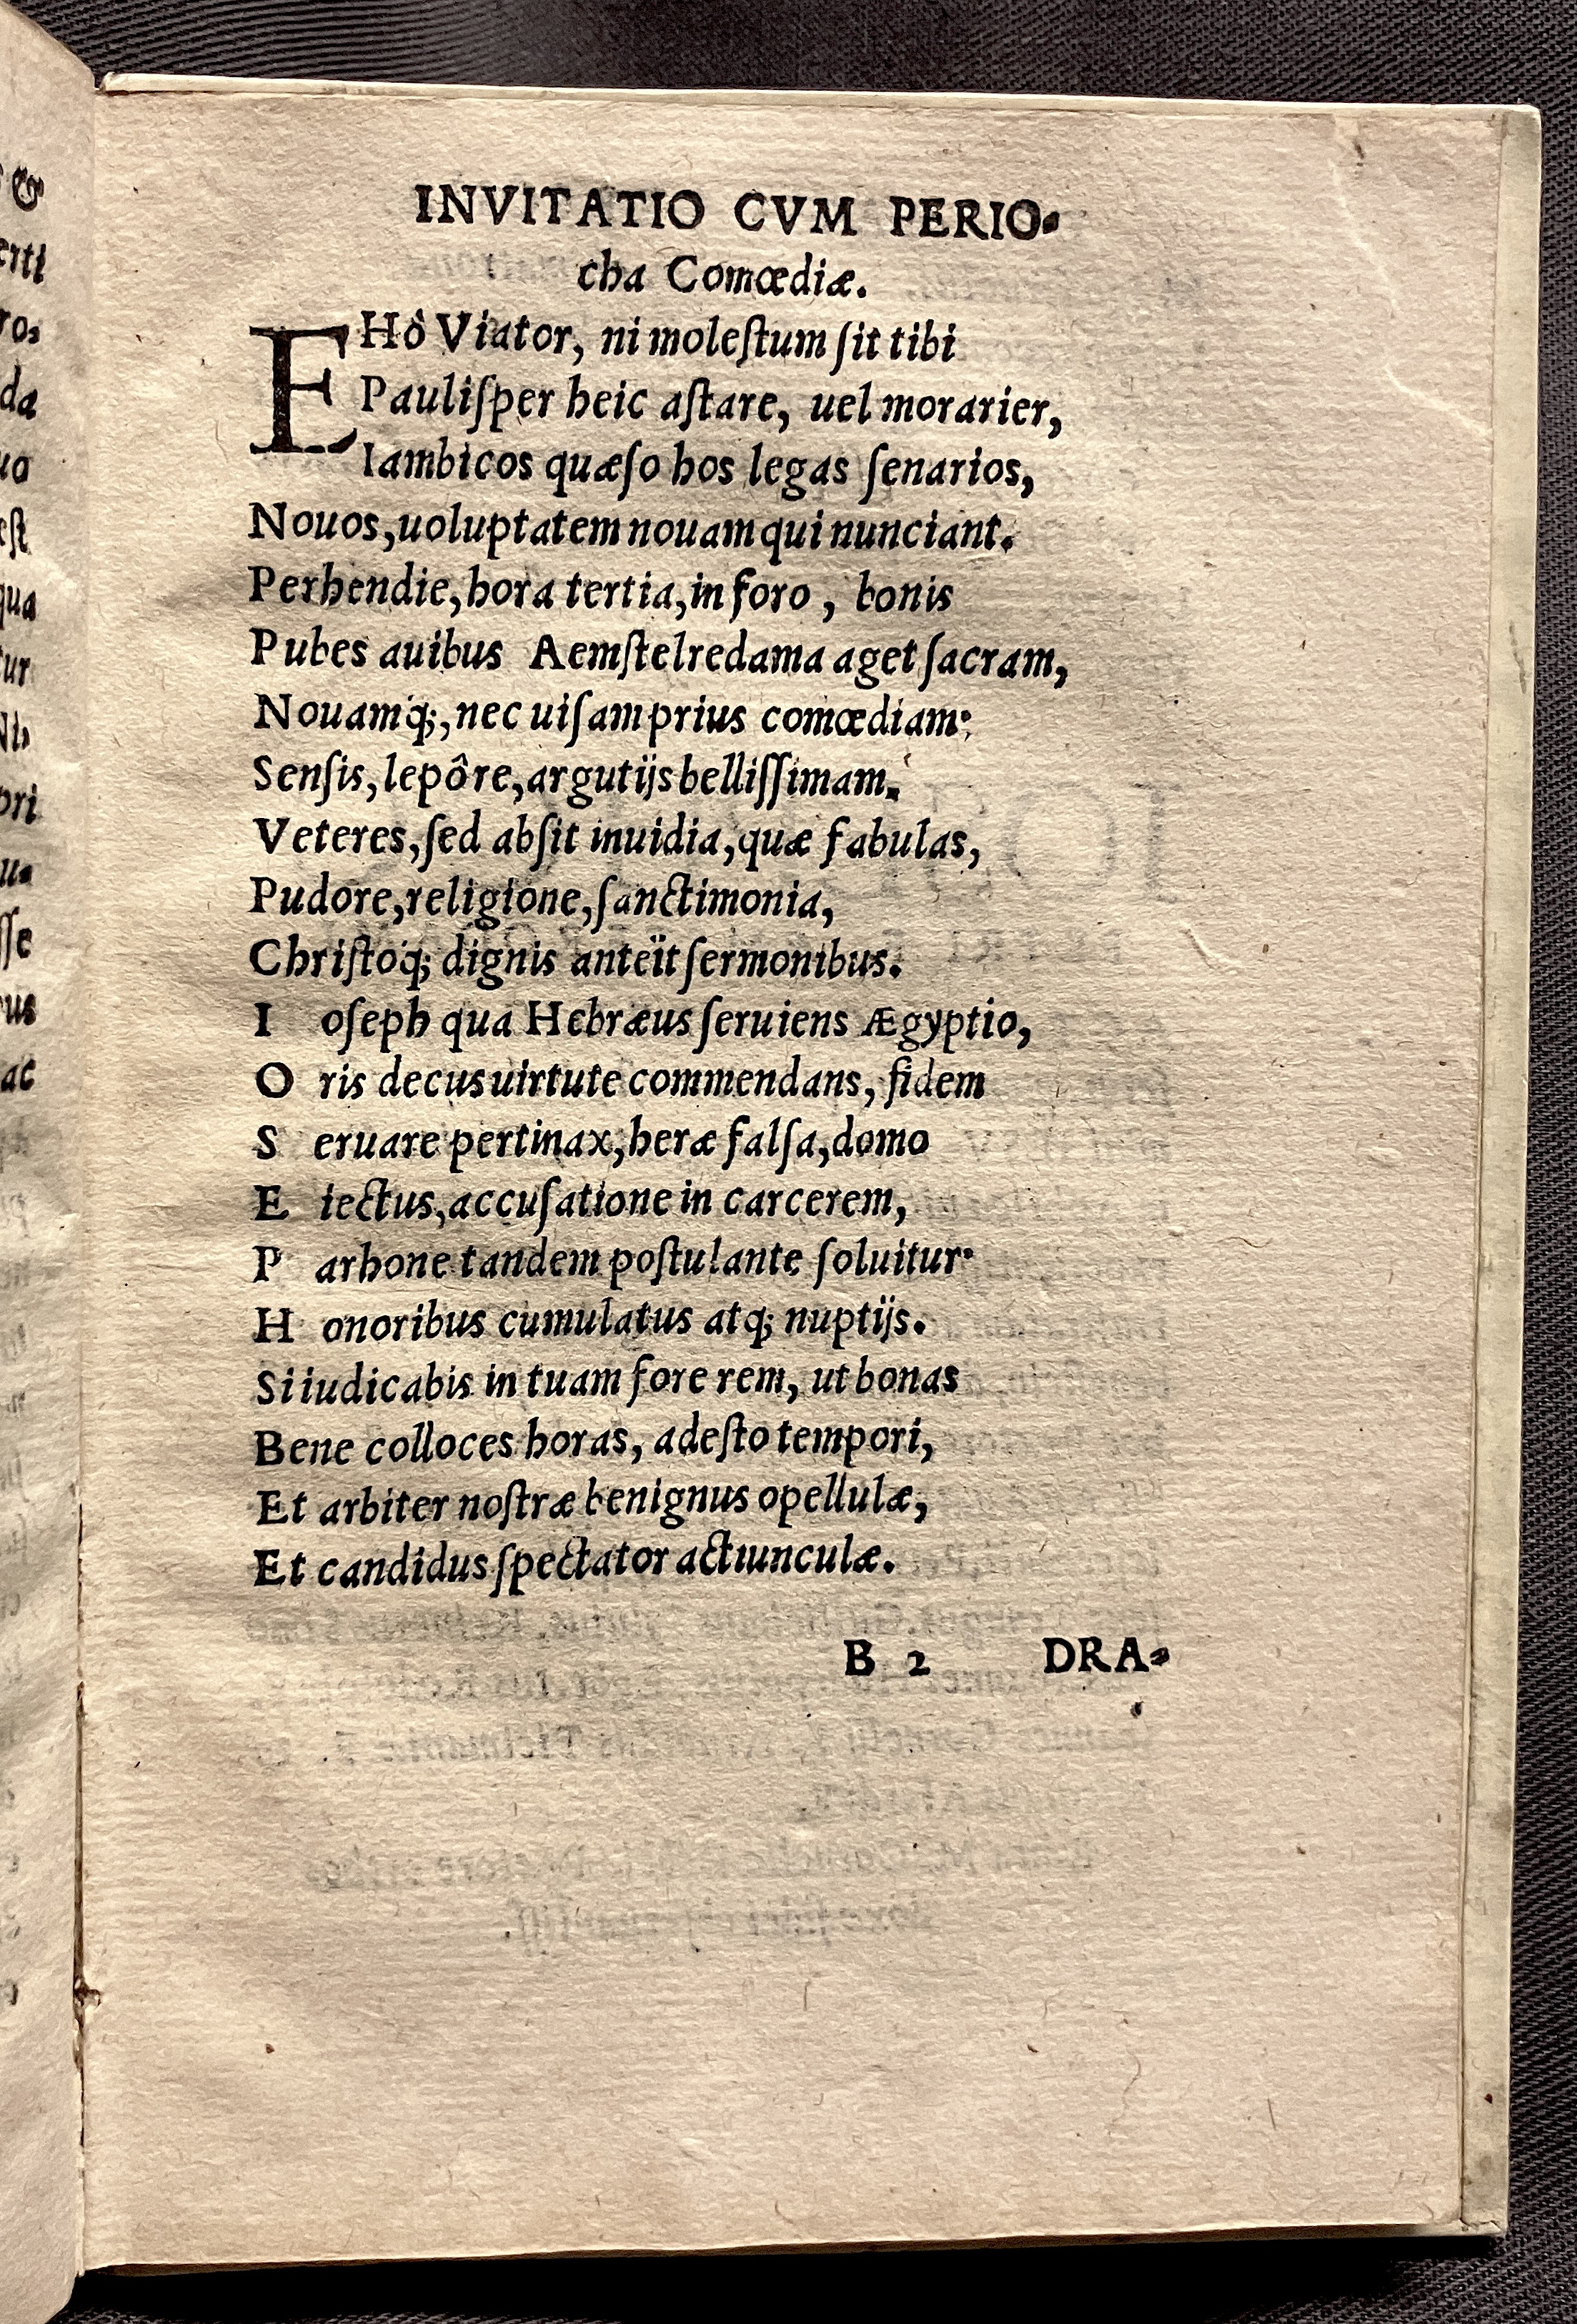 INVITATIO CVM PERIO-
cha Comœdiæ.
EHô Viator, ni molestum sit tibi
Paulisper heic astare, uel morarier,
Iambicos quæso hos legas senarios,
Nouos, uoluptatem nouam qui nunciant.
Perhendie, hora tertia, in foro, bonis
Pubes auibus Aemstelredama aget sacram,
Nouamq;, nec uisam prius comœdiam:
Sensis, lepôre, argutijs bellissimam.
Veteres, sed absit inuidia, quæ fabulas,
Pudore, religione, sanctimonia,
Christoq; dignis anteït sermonibus.
I oseph qua Hebræus seruiens Ægyptio,
O ris decus uirtute commendans, fidem
S eruare pertinax, heræ falsa, domo
E iectus, accusatione in carcerem,
P arhone tandem postulante soluitur
H onoribus cumulatus atq; nuptijs.
Si iudicabis in tuam fore rem, ut bonas
Bene colloces horas, adesto tempori,
Et arbiter nostræ benignus opellulæ,
Et candidus spectator actiunculæ.
B 2 DRA-